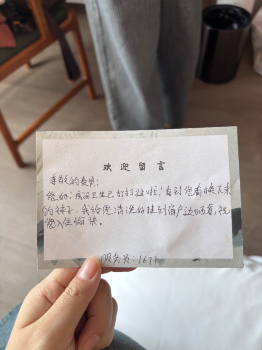 欢迎留言
尊敬的贵宾:
您好!房间卫生已打扫过啦!看到您有换下来
的袜子,我给您清洗好挂到窗户边晒着,祝
您入住愉快。
服务员:1671